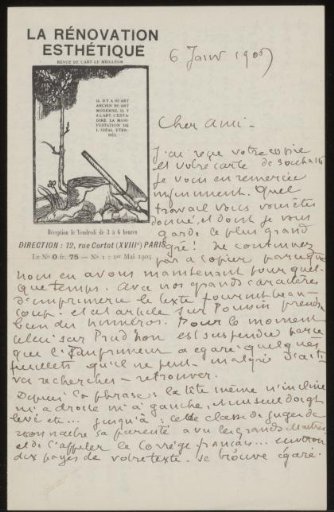 LA RÉNOVATION
ESTHÉTIQUE
REVUE DE L'ART LE MEILLEUR
6 Janv 190
IL N'Y A NI ART
ANCIEN NI ART
MODERNE, IL Y
A L'ART, C'EST À
DIRE LA MANI-
FESTATION DE
L'IDÉAL ÉTER-
NEL
Réception le Vendredi de 3 à 6 heures
DIRECTION : 12, rue Cortot (XVIIIe) PARIS
Le No 0 fr. 75 — No 1 : 1er Mai 1905
Cher ami -
J'ai reçu votre copie
et votre carte de
je vous en remercie
infiniment. Quel
travail vous vous êtes
donné, et dont je vous
garde le plus grand
gré! Ne continuez
pas à copier parceque
nous en avons maintenant pour quel-
que temps. Avec nos grands caractères
d'imprimerie le texte fournit beau-
coup. et cet article sur Poussin prendra
bien des numéros. Pour le moment
celui sur Prudhon est suspendu parce
que l'Imprimeur a égaré quelques
feuillets qu'il ne peut - malgré
recherches - retrouver.
Depuis la phrase: la tête même n'incline
ni à droite ni à gauche. Un seul doigt
levé etc... jusqu'à: cette classe de juges de
reconnaître sa parenté avec les grands maîtres
et de l'appeler le Corrège français... environ
dix pages de votre texte. se trouve égaré.